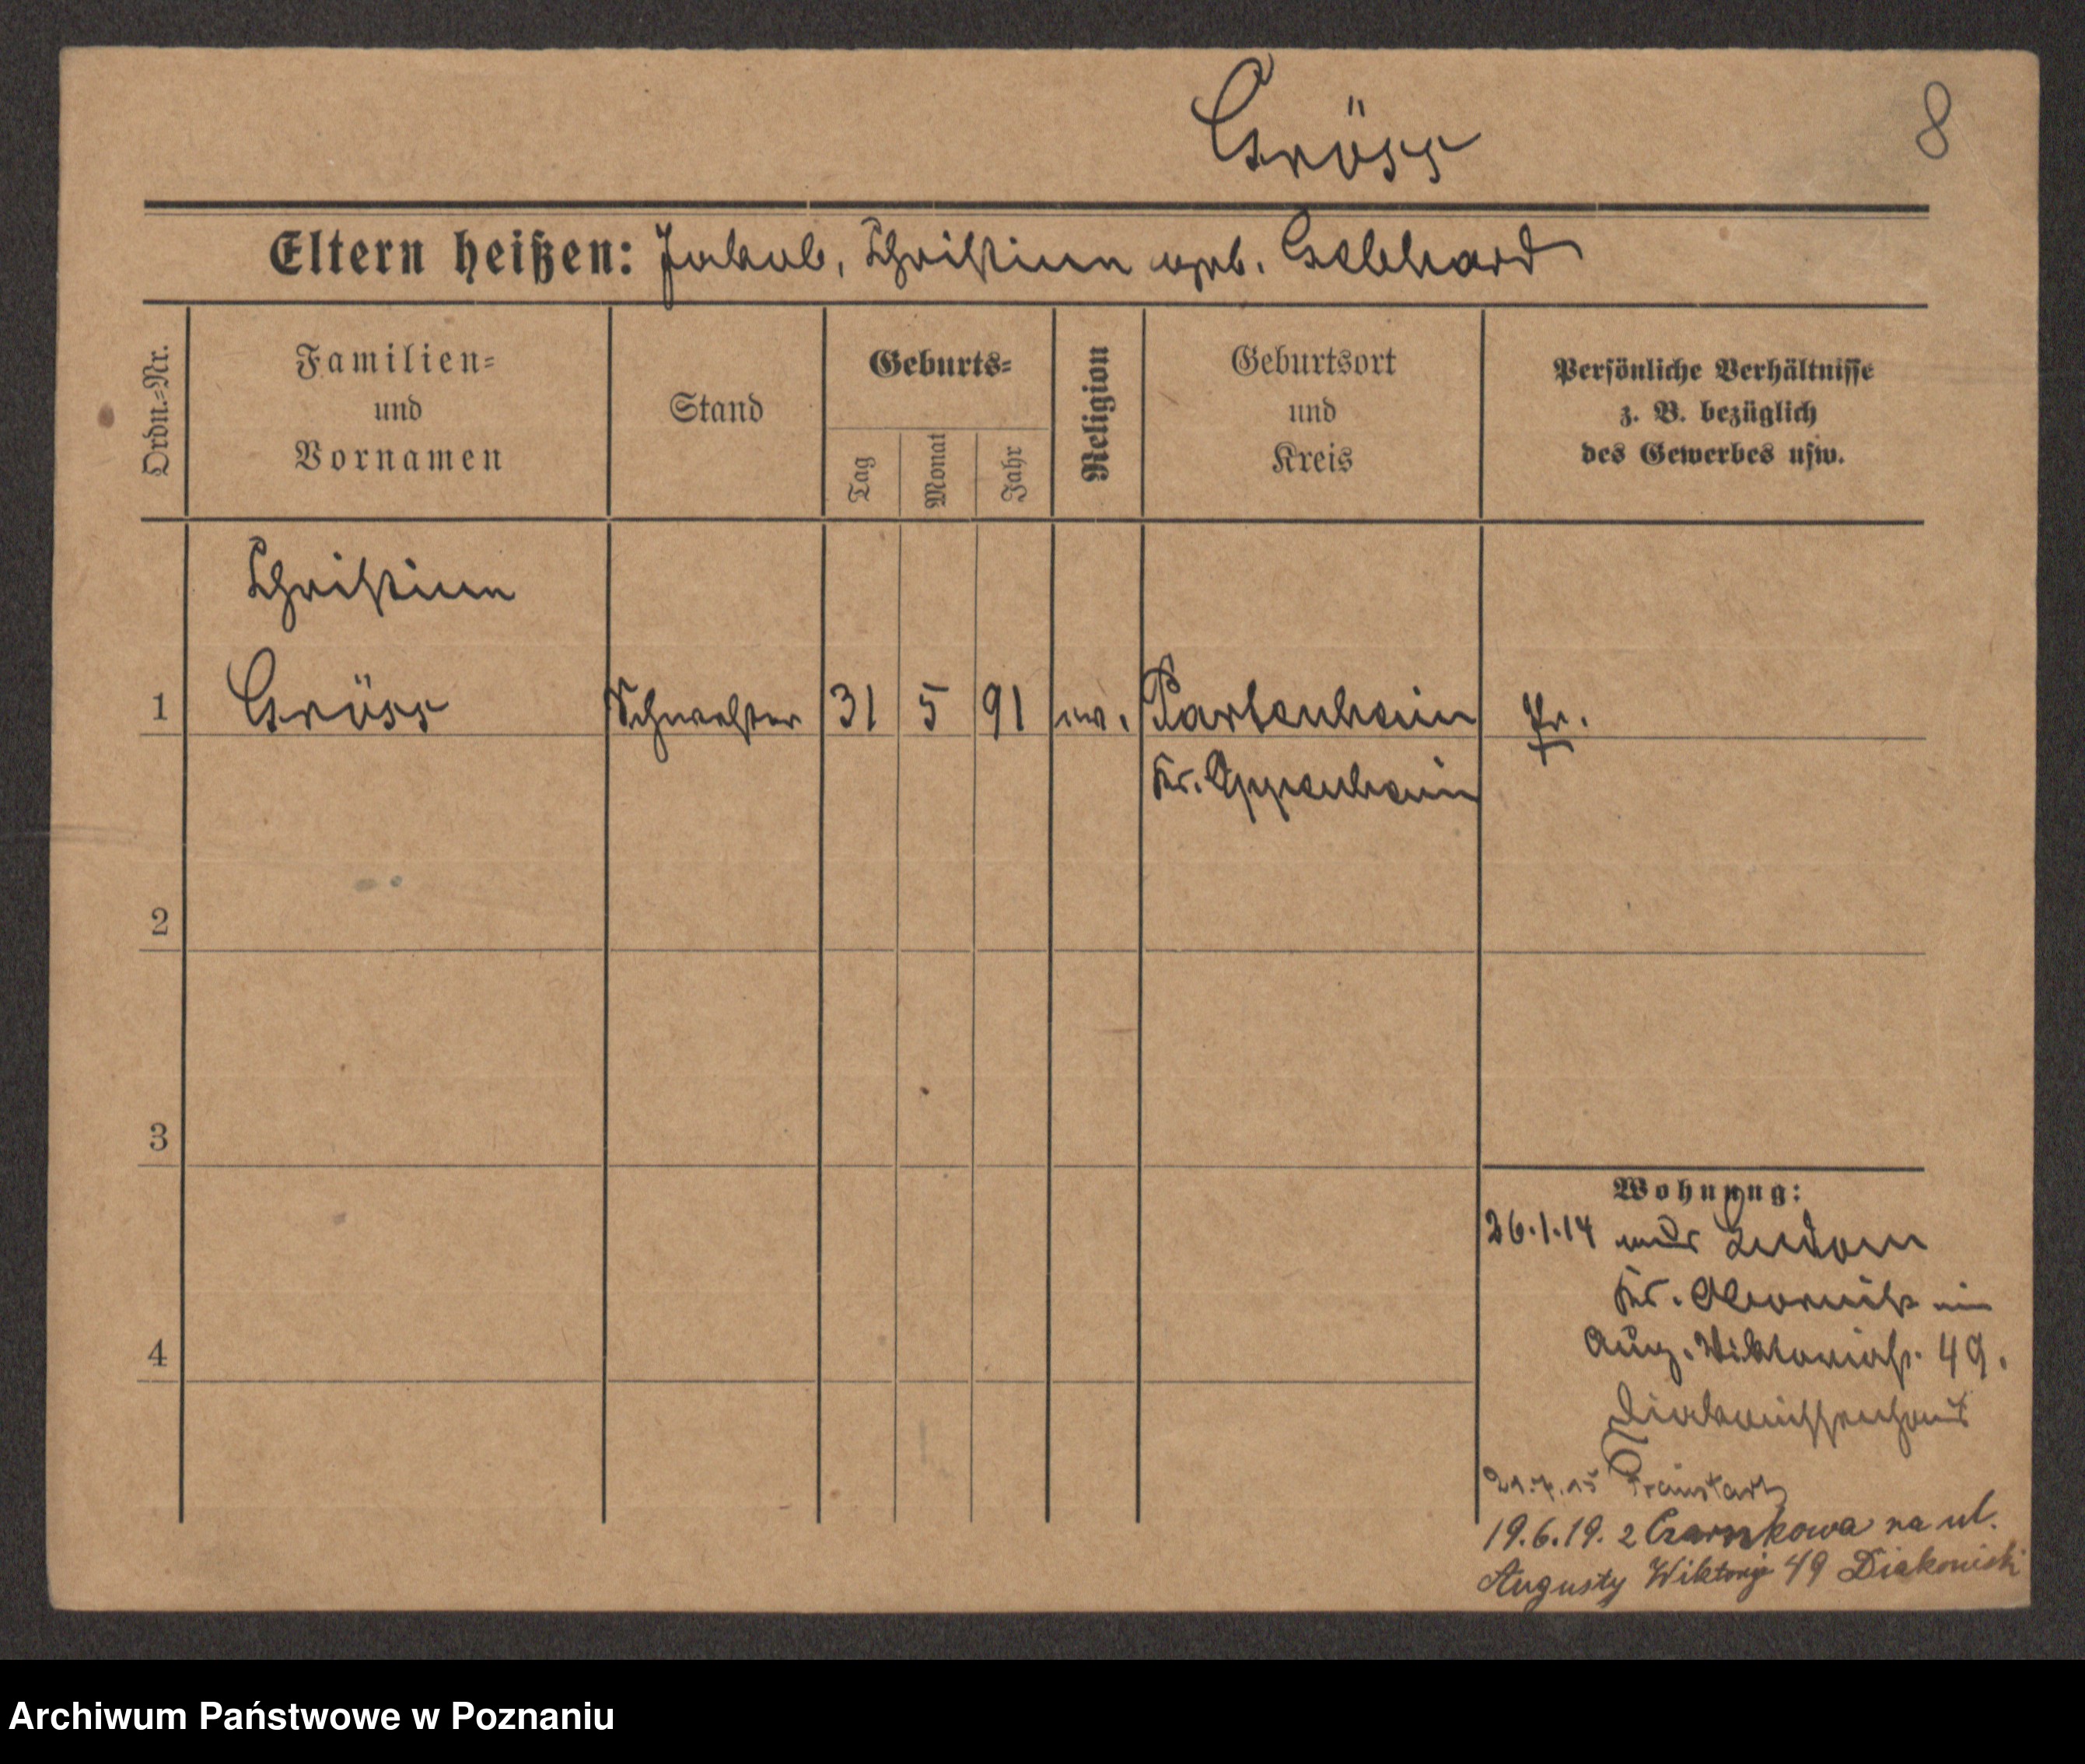 Gröss
8
Eltern heißen: Jakob, Christine geb. Gebhard
Ordn.-Nr.
Familien-
und
Vornamen
Stand
Geburts-
Tag
Monat
Jahr
Religion
Geburtsort
und
Kreis
Persönliche Verhältnisse
z. B. bezüglich
des Gewerbes usw.
Christine
1 Gröss Schwester 31 5 91 ev. Partenheim Pr.
Kr. Oppenheim
2
3
Wohnung:
26.1.14 aus Ludom
Kr. Obornik in
4
Aug. Viktoriastr. 49.
Diakonissenhaus
21.7.15 Fraustadt
19.6.19. z Czarnkowa na ul.
Augusty Wiktorji 49 Diakoniski
Archiwum Państwowe w Poznaniu